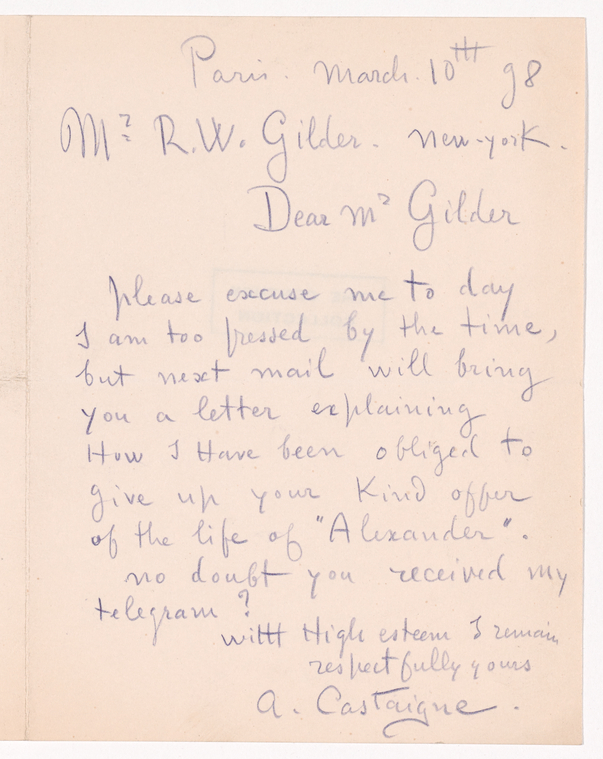 Paris. March. 10th 98
Mr R.W. Gilder. New-york.
Dear Mr Gilder
please excuse me to day
I am too pressed by the time,
but next mail will bring
you a letter explaining
How I Have been obliged to
give up your Kind offer
of the life of "Alexander".
no doubt you received my
telegram?
with High esteem I remain
respectfully yours
A. Castaigne.